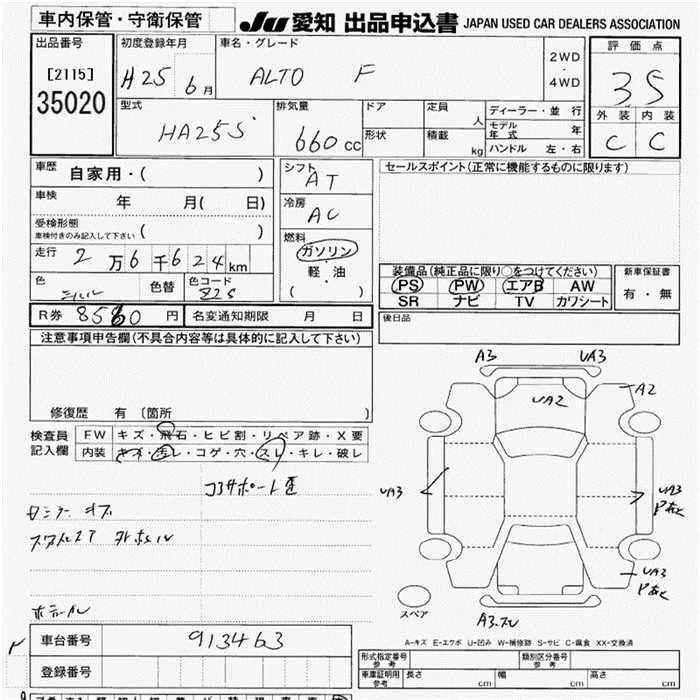 車内保管・守衛保管
JU 愛知 出品申込書 JAPAN USED CAR DEALERS ASSOCIATION
出品番号
[2115]
35020
初度登録年月
H25 6月
車名・グレード
ALTO F
2WD
・
4WD
評価点
35
外装 内装
C C
型式
HA25S
排気量
660 cc
ドア
形状
定員
人
積載
kg
ディーラー・並行
モデル年式 年
ハンドル 左・右
車歴
自家用・( )
車検
年 月( 日)
受検形態
車検付きのみ記入して下さい ( )
走行 2万6千624km
色
シルバー
色替
色コード
Z2S
シフト
AT
冷房
AC
燃料
ガソリン
軽・油
( )
セールスポイント(正常に機能するものに限ります)
装備品(純正品に限り○をつけてください)
PS PW エアB AW
SR ナビ TV カワシート
新車保証書
有・無
R券 8580 円
名変通知期限 月 日
後日品
注意事項申告欄(不具合内容等は具体的に記入して下さい)
修復歴 有 (箇所 )
検査員
記入欄
FW キズ・飛石・ヒビ割・リペア跡・X要
内装 キズ・汚レ・コゲ・穴・スレ・キレ・破レ
A3 UA3
UA2
A2
UA3
UA3
Pあと
UA3
Pあと
スペア
A-キズ E-エクボ U-凹み W-補修跡 S-サビ C-腐食 XX-交換済
車台番号 913463
登録番号
形式指定番号
参考
類別区分番号
参考
車庫証明用
参考
長さ cm 幅 cm 高さ cm